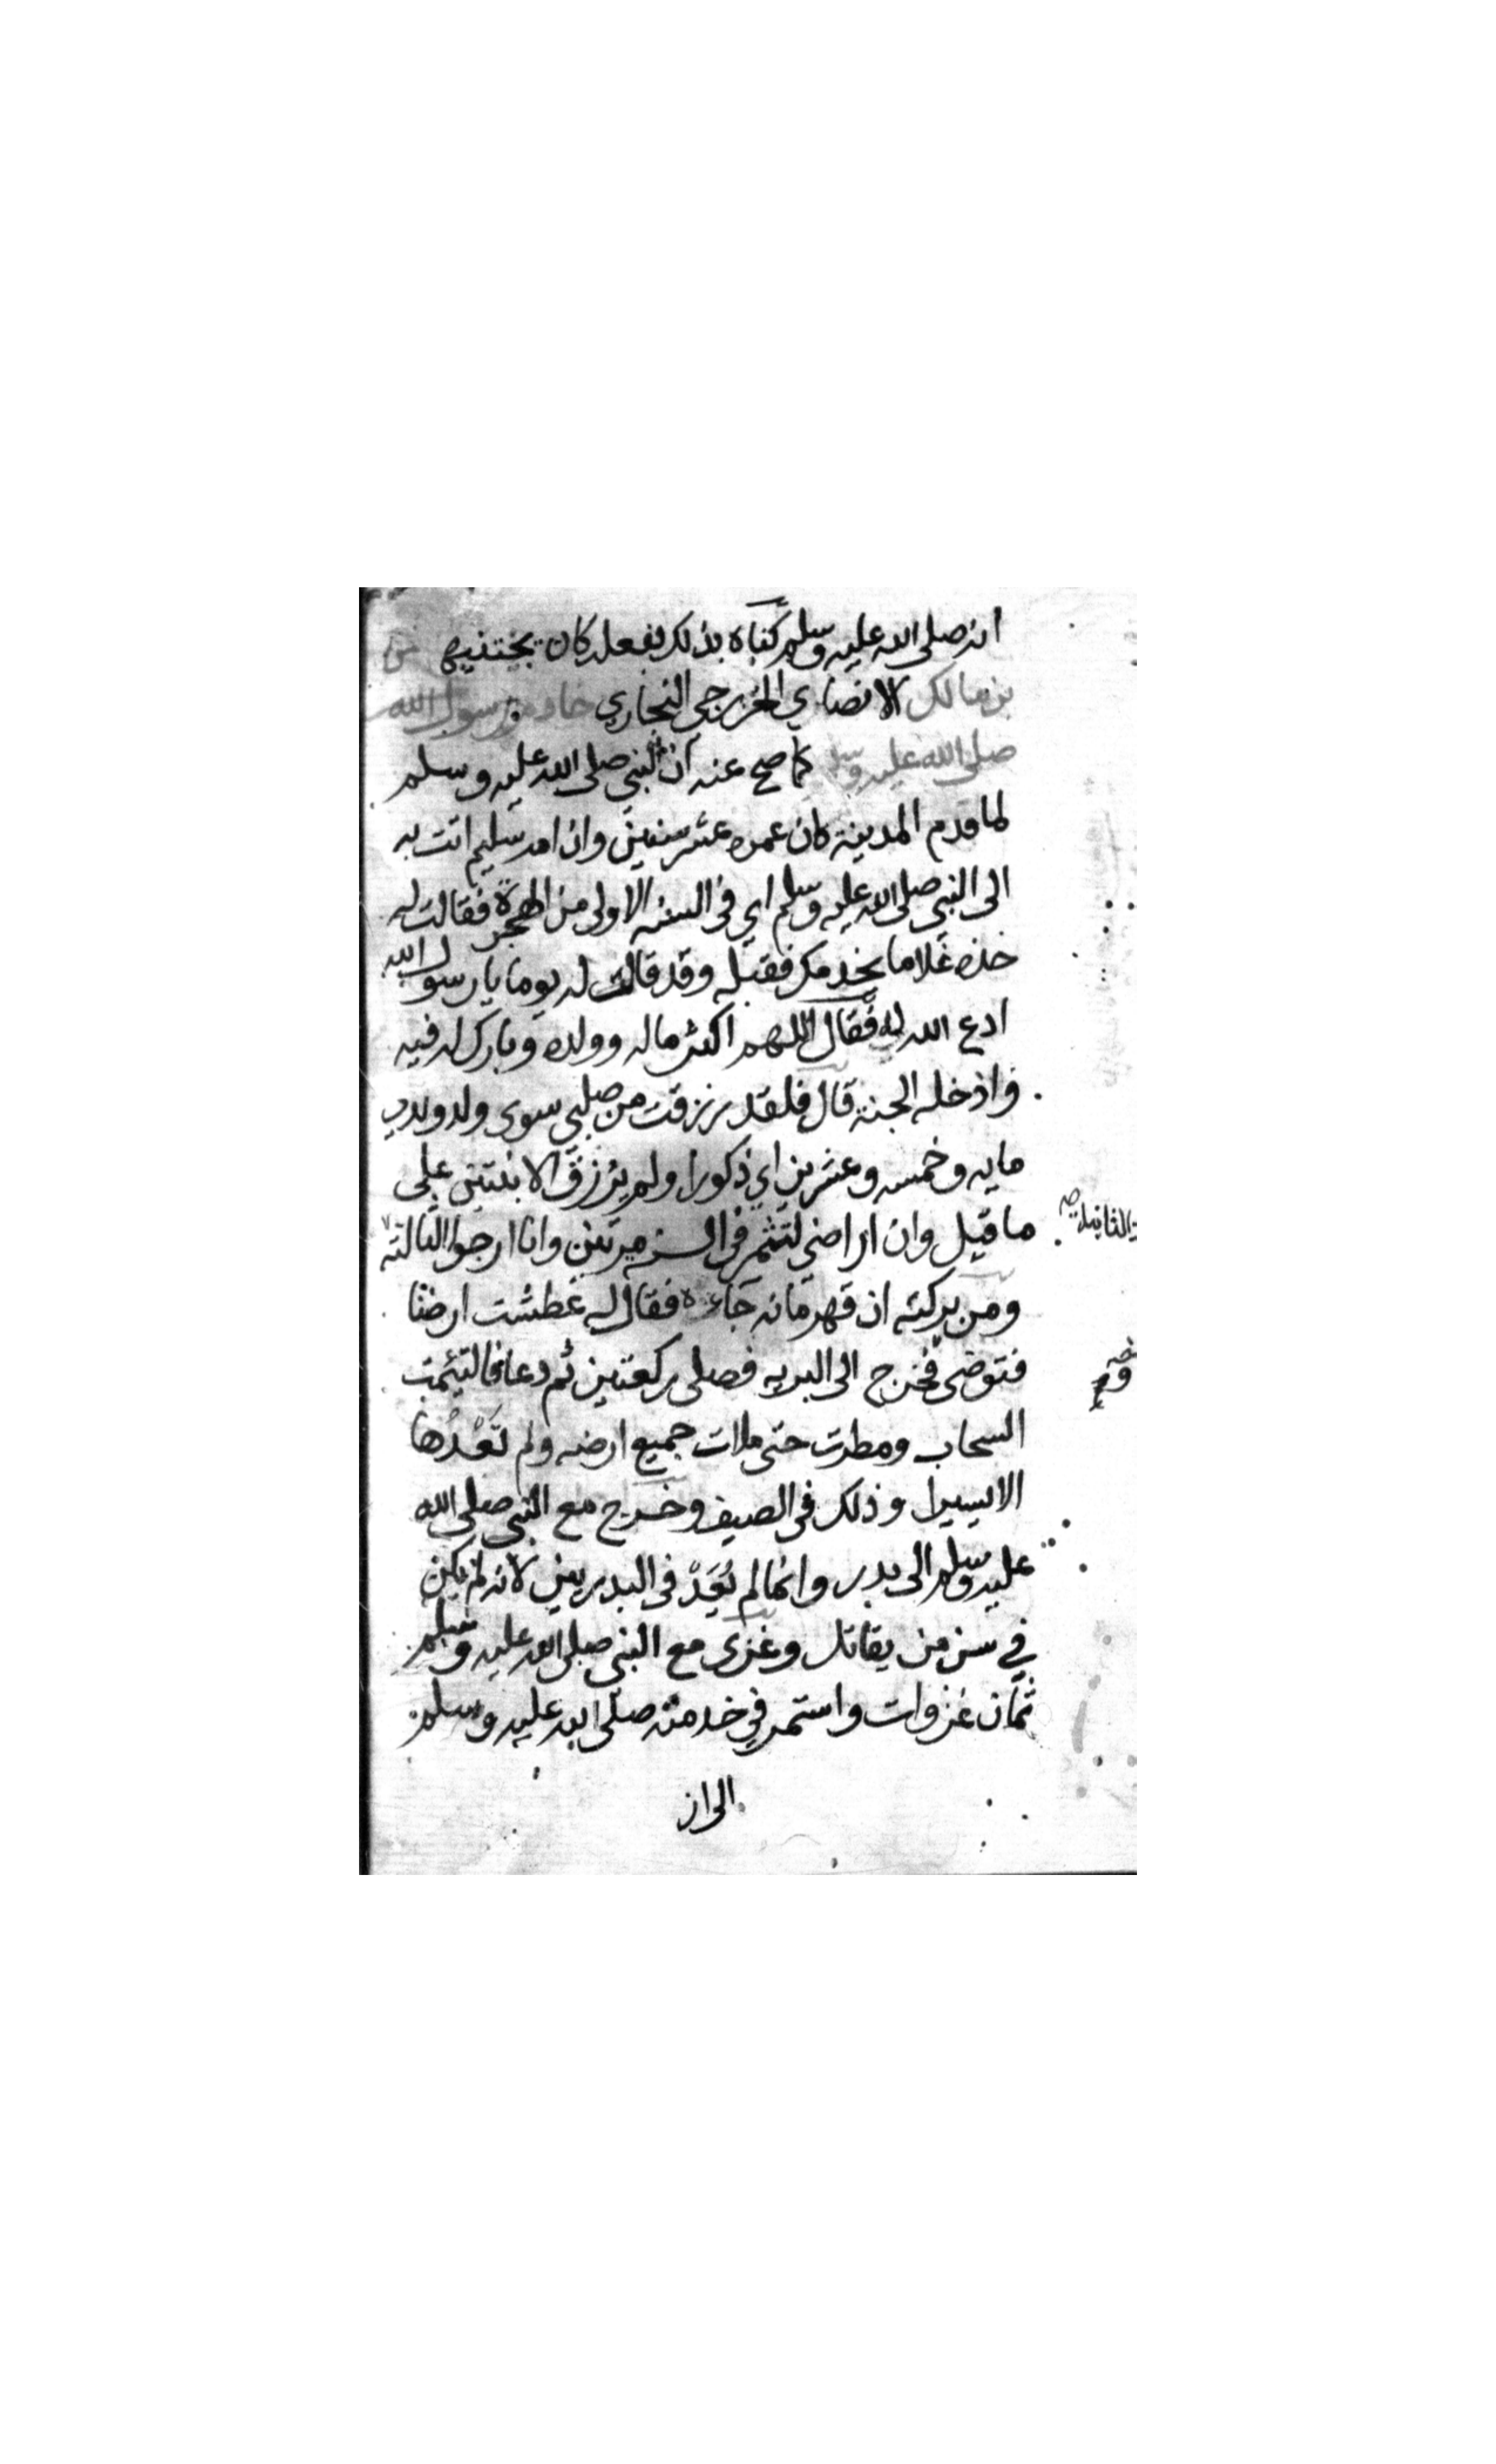 انه صلى الله عليه وسلم كناه بذلك ببقله كان يجتنيها
بن مالك الانصاري الخزرجي النجاري خادم رسول الله
صلى الله عليه وسلم كما صح عنه ان النبي صلى الله عليه وسلم
لما قدم المدينة كان عمره عشر سنين وان ام سليم اتت به
الى النبي صلى الله عليه وسلم اي في السنه الاولى من الهجرة فقالت له
خذه غلاما يخدمك فقبله وقد قالت له يوما يا رسول الله
ادع الله له فقال اللهم اكثر ماله وولده وبارك له فيه
وادخله الجنة قال فلقد رزقت من صلبي سوى ولد ولدي
مايه وخمسه وعشرين اي ذكورا ولم يرزق الا بنتين على
ما قيل وان اراضي لتثمر في السنه مرتين وانا ارجوا الثالثة
ومن بركته ان قهرمانه جاءه فقال له عطشت ارضنا
فتوضى فخرج الى البريه فصلى ركعتين ثم دعا فالتيمت
السحاب ومطرت حتى ملات جميع ارضه ولم تَعْدُها
الا يسيرا وذلك في الصيف وخرج مع النبي صلى الله
عليه وسلم الى بدر وانما لم يُعَدّ في البدريين لانه لم يكن
في سن من يقاتل وغزى مع النبي صلى الله عليه وسلم
ثمان غزوات واستمر في خدمته صلى الله عليه وسلم
الى ان